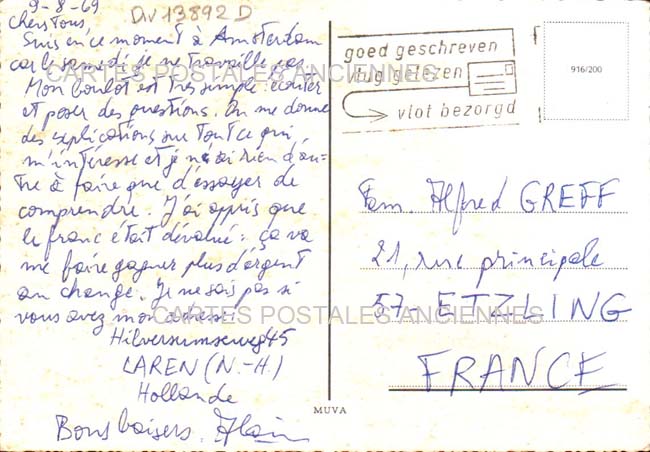 9-8-69
DIV13892D
Chers tous,
Suis en ce moment à Amsterdam
car le samedi je ne travaille pas.
Mon boulot est très simple: écouter
et poser des questions. On me donne
des explications sur tout ce qui
m'intéresse et je n'ai rien d'au-
tre à faire que d'essayer de
comprendre. J'ai appris que
le franc était dévalué: ça va
me faire gagner plus d'argent
au change. Je ne sais pas si
vous avez mon adresse:
Hilversumseweg 45
LAREN (N.-H)
Hollande
Bons baisers. Alain
goed geschreven
vlug gelezen
vlot bezorgd
916/200
Fam. Alfred GREFF
21, rue principale
57-ETZLING
FRANCE
MUVA
CARTES POSTALES ANCIENNES
CARTES POSTALES ANCIENNES